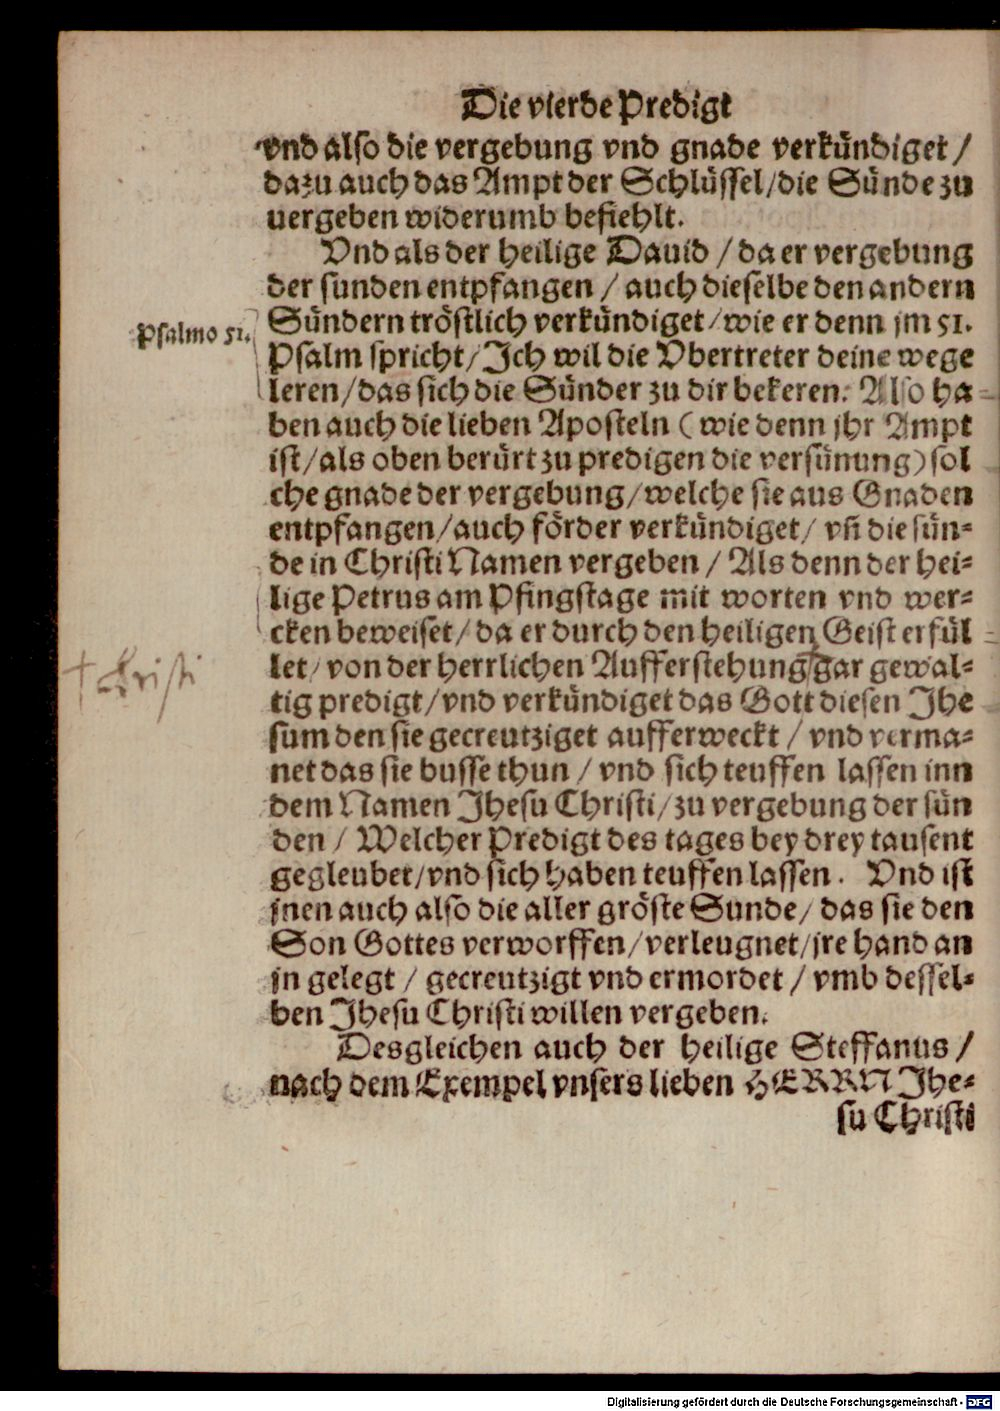 Die vierde Predigt
vnd also die vergebung vnd gnade verkündiget /
dazu auch das Ampt der Schlüssel/die Sünde zu
uergeben widerumb befiehlt.
Vnd als der heilige Dauid / da er vergebung
der sunden entpfangen / auch dieselbe den andern
Sündern tröstlich verkündiget/wie er denn jm 51.
Psalmo 51.
Psalm spricht/Ich wil die Vbertreter deine wege
leren/das sich die Sünder zu dir bekeren. Also ha-
ben auch die lieben Aposteln (wie denn jhr Ampt
ist/als oben berürt zu predigen die versünung) sol
che gnade der vergebung/welche sie aus Gnaden
entpfangen/auch förder verkündiget/ vñ die sün-
de in Christi Namen vergeben / Als denn der hei-
lige Petrus am Pfingstage mit worten vnd wer-
cken beweiset/da er durch den heiligen Geist erfül
let/von der herrlichen Aufferstehung gar gewal-
† Christi
tig predigt/vnd verkündiget das Gott diesen Jhe
sum den sie gecreutziget aufferweckt / vnd verma-
net das sie busse thun / vnd sich teuffen lassen inn
dem Namen Jhesu Christi/zu vergebung der sün
den / Welcher Predigt des tages bey drey tausent
gegleubet/vnd sich haben teuffen lassen. Vnd ist
jnen auch also die aller gröste Sunde/ das sie den
Son Gottes verworffen/verleugnet/jre hand an
jn gelegt / gecreutzigt vnd ermordet / vmb dessel-
ben Jhesu Christi willen vergeben.
Desgleichen auch der heilige Steffanus /
nach dem Exempel vnsers lieben HERRN Jhe-
su Christi
Digitalisierung gefördert durch die Deutsche Forschungsgemeinschaft - DFG